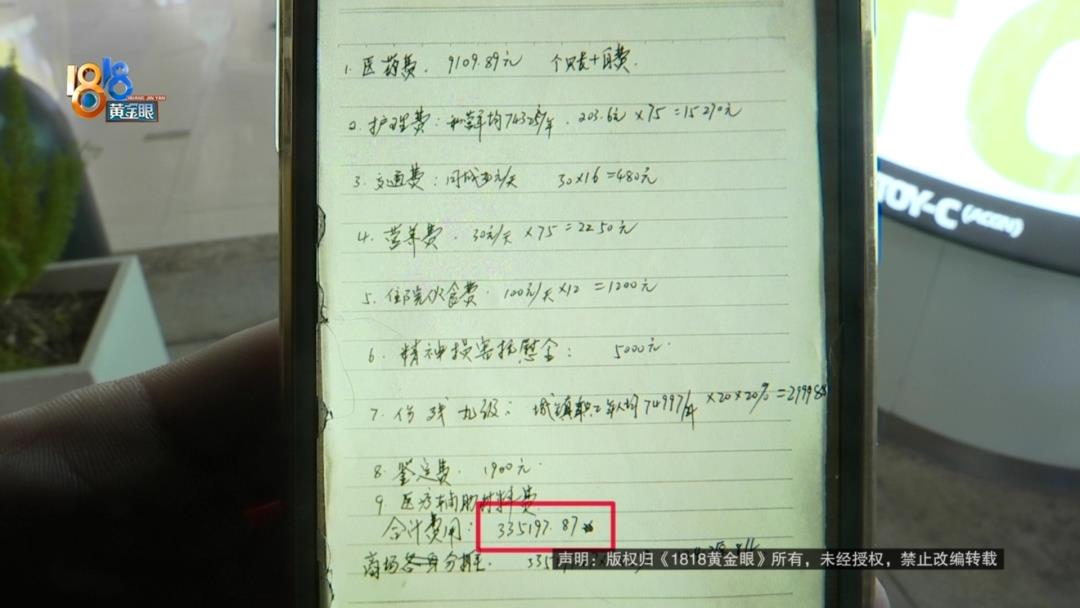 1818
HUANG JIN YAN
黄金眼
1. 医药费. 9109.89元 个账+自费.
2. 护理费: 年均74325/年. 203.6元×75=15270元
3. 交通费: 同城30元/天 30×16=480元
4. 营养费. 30元/天 ×75=2250元
5. 住院伙食费. 100元/天×12 =1200元
6. 精神损害抚慰金: 5000元.
7. 伤残九级: 城镇职工年人均74997/年 ×20×20%=299988
8. 鉴定费. 1900元.
9. 医疗辅助材料费
合计费用: 335197.87
商场 自分担. 335
TOY-C (ACGN)
声明:版权归《1818黄金眼》所有,未经授权,禁止改编转载